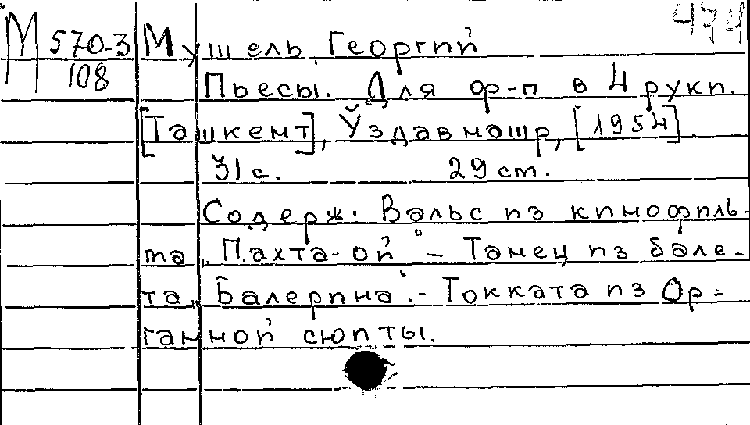 М 570-3 Мушель, Георгий 474
108 Пьесы. Для ф-п в 4 руки.
[Ташкент], Ўздавнашр, [1954]
31 с. 29 ст.
Содерж. Вальс из кинофиль-
ма „Пахта-ой“ – Танец из бале-
та „Балерина“. – Токката из Ор-
ганной сюиты.